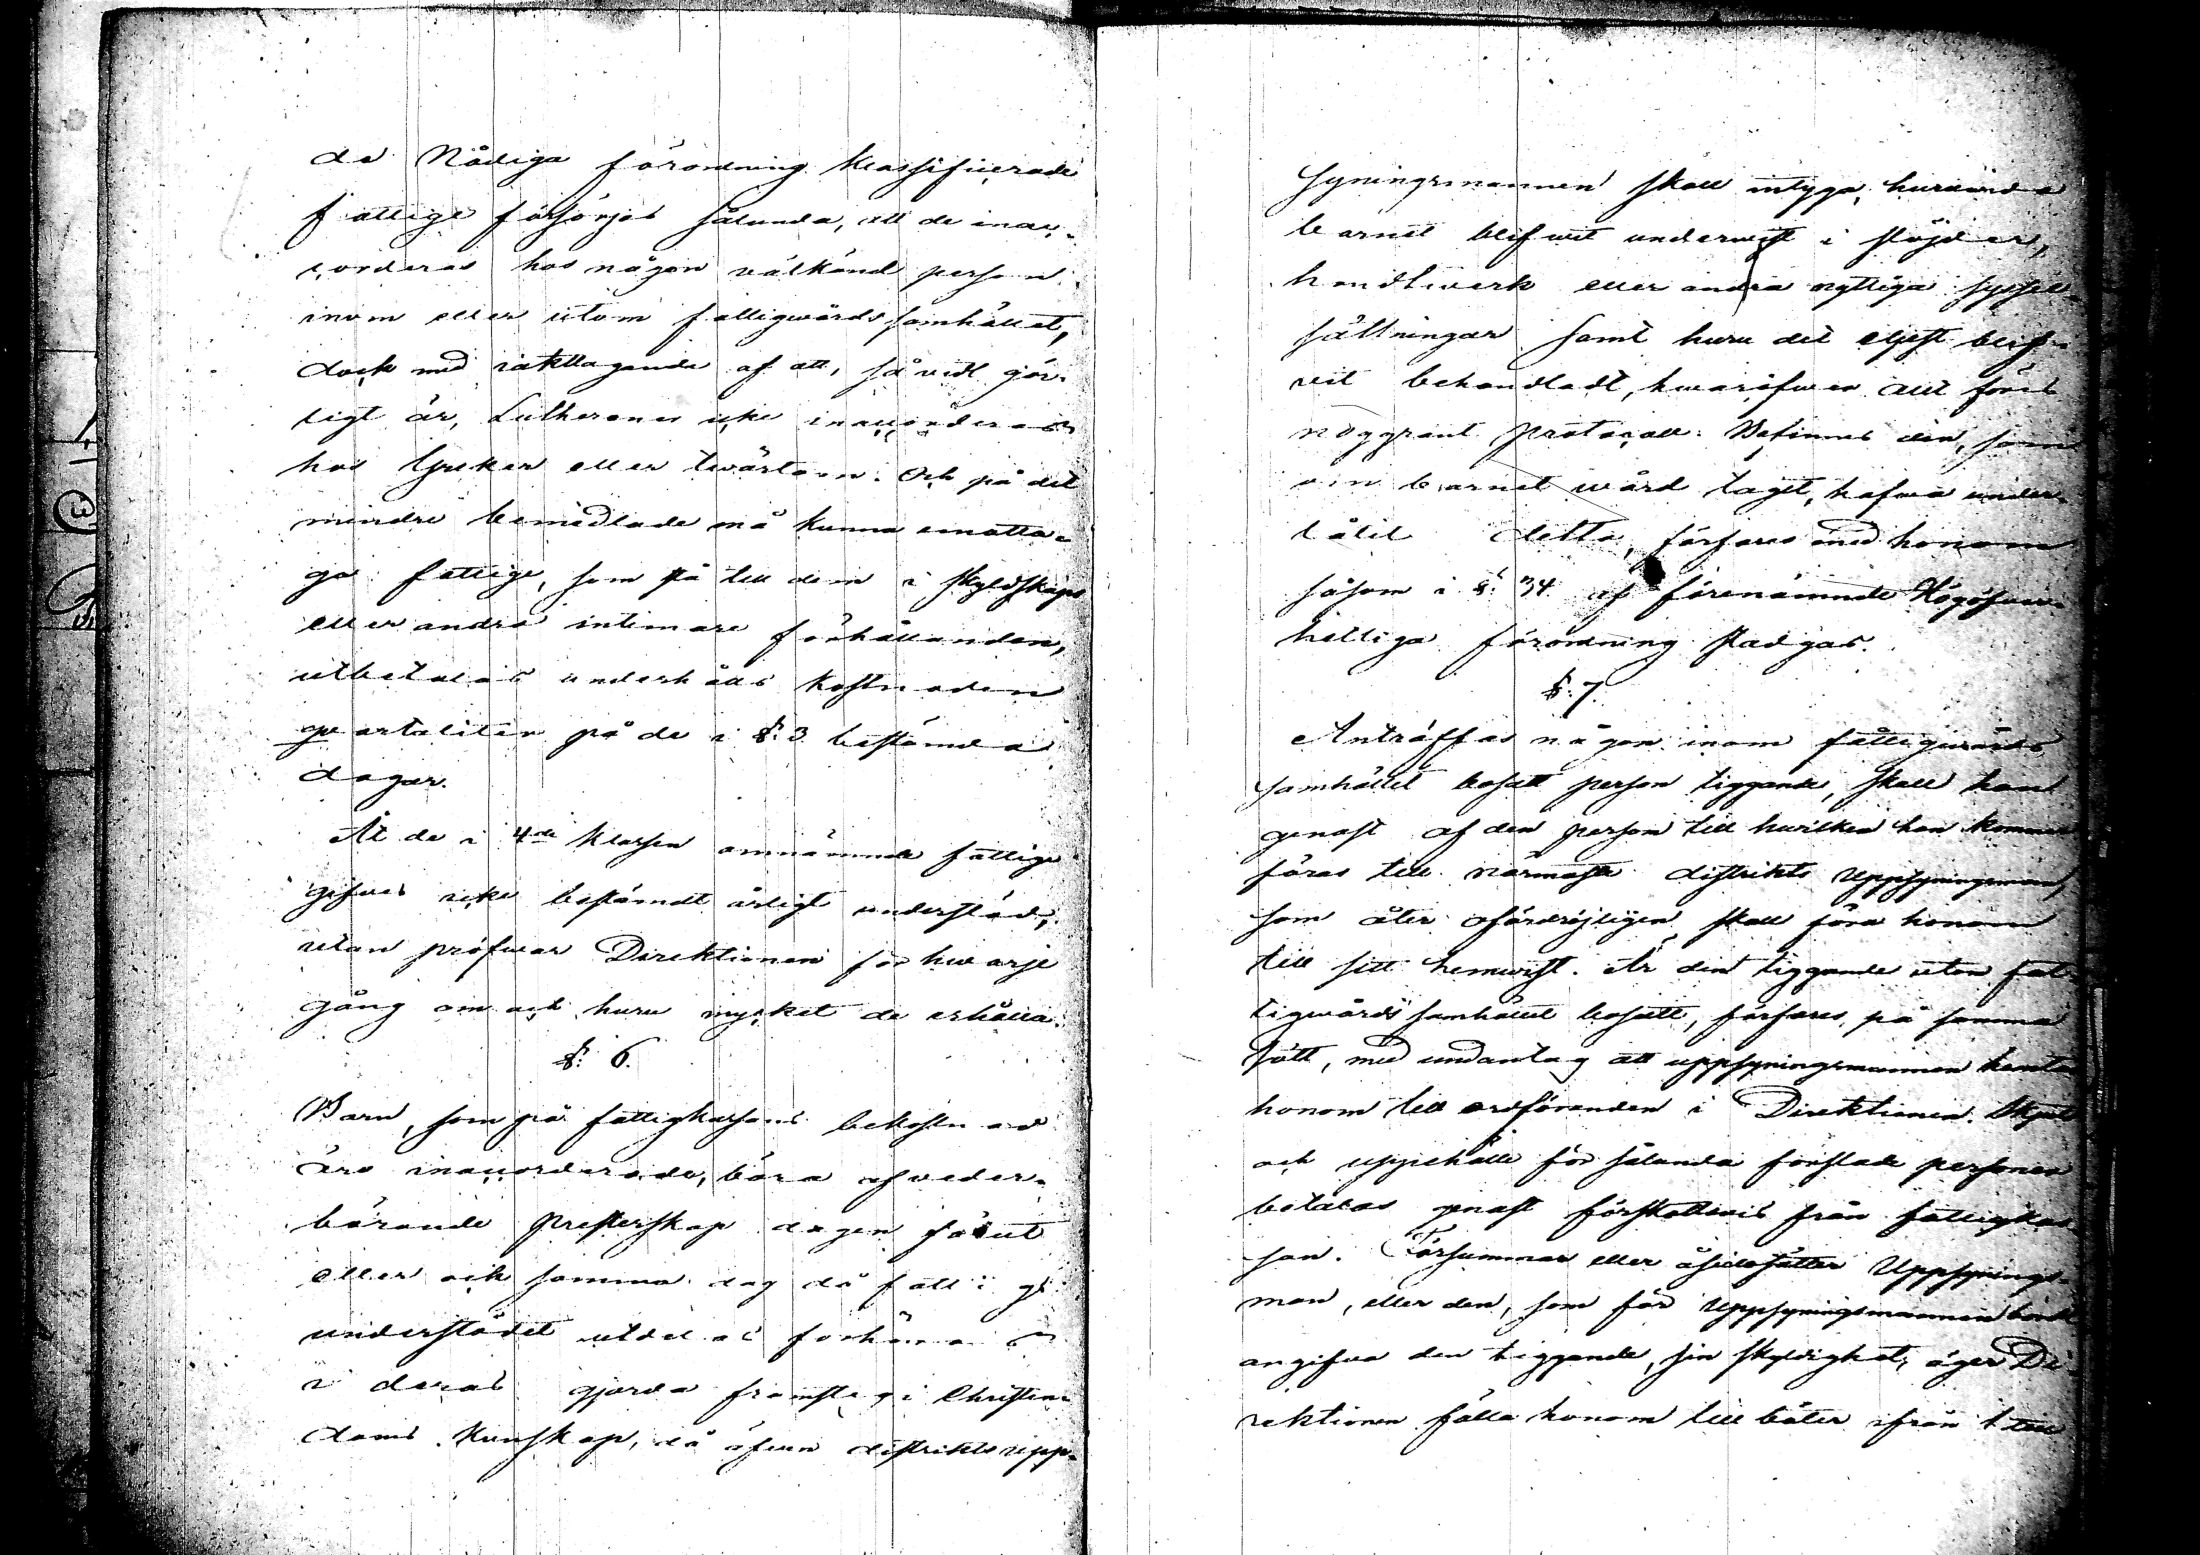 de Nådiga förordning klassificerade
fattige försörjas sålunda, att de inac-
corderas hos någon välkänd person
inom eller utom fattigvårdssamhället,
dock med iakttagande af att, såvidt gör-
ligt är, Lutheraner icke inaccorderas
hos Greker eller tvärtom. Och på det
mindre bemedlade må kunna emotta-
ga fattige, som stå till dem i skyldskaps
eller andra intimare förhållanden,
utbetalas underhålls kostnaden
qvartaliter på de i §. 3 bestämda
dagar.
Åt de i 4de klassen omnämnde fattige
gifves icke bestämdt årligt understöd,
utan pröfwar Direktionen för hwarje
gång om och huru mycket de erhålla.
§. 6.
Barn, som på fattigkassans bekostnad
äro inaccorderade, böra af veder-
börande Presterskap dagen förut
eller ock samma dag då fattige
understödet utdelas förhöras
i deras gjorda framsteg i Christen-
doms kunskap, då äfwen distrikts upp-
syningsmannen skall intyga, huruvida
barnet blifwit underwist i slöjder,
handtwerk eller andra nyttiga syssel-
sättningar samt huru det eljest blif-
vit behandladt, hwaröfwer allt föres
noggrant protocoll. Befinnes den, som
om barnet wård taget, hafwa under-
låtit detta, förfares med honom
såsom i §. 34 af förenämnde Högöfwer-
hetliga förordning stadgas.
§. 7.
Anträffas någon inom fattigwårds
samhället bosatt person tiggande, skall han
genast af den person till hwilken han kommer
föras till närmaste distrikts Uppsyningsman,
som åter ofördröjligen skall föra honom
till sitt hemwist. Är den tiggande utom fat-
tigwårds samhället bosatt, förfares på samma
sätt, med undantag att uppsyningsmannen hemtar
honom till ordföranden i Direktionen. Skjuts
och uppehälle för sålunda förslade personer
betalas genast förskottsvis från fattigkas-
san. Försummar eller åsidosätter Uppsynings-
man, eller den, som för Uppsyningsmannen bordt
angifva den tiggande, sin skyldighet, äger Di-
rektionen fälla honom till böter ifrån 1 till